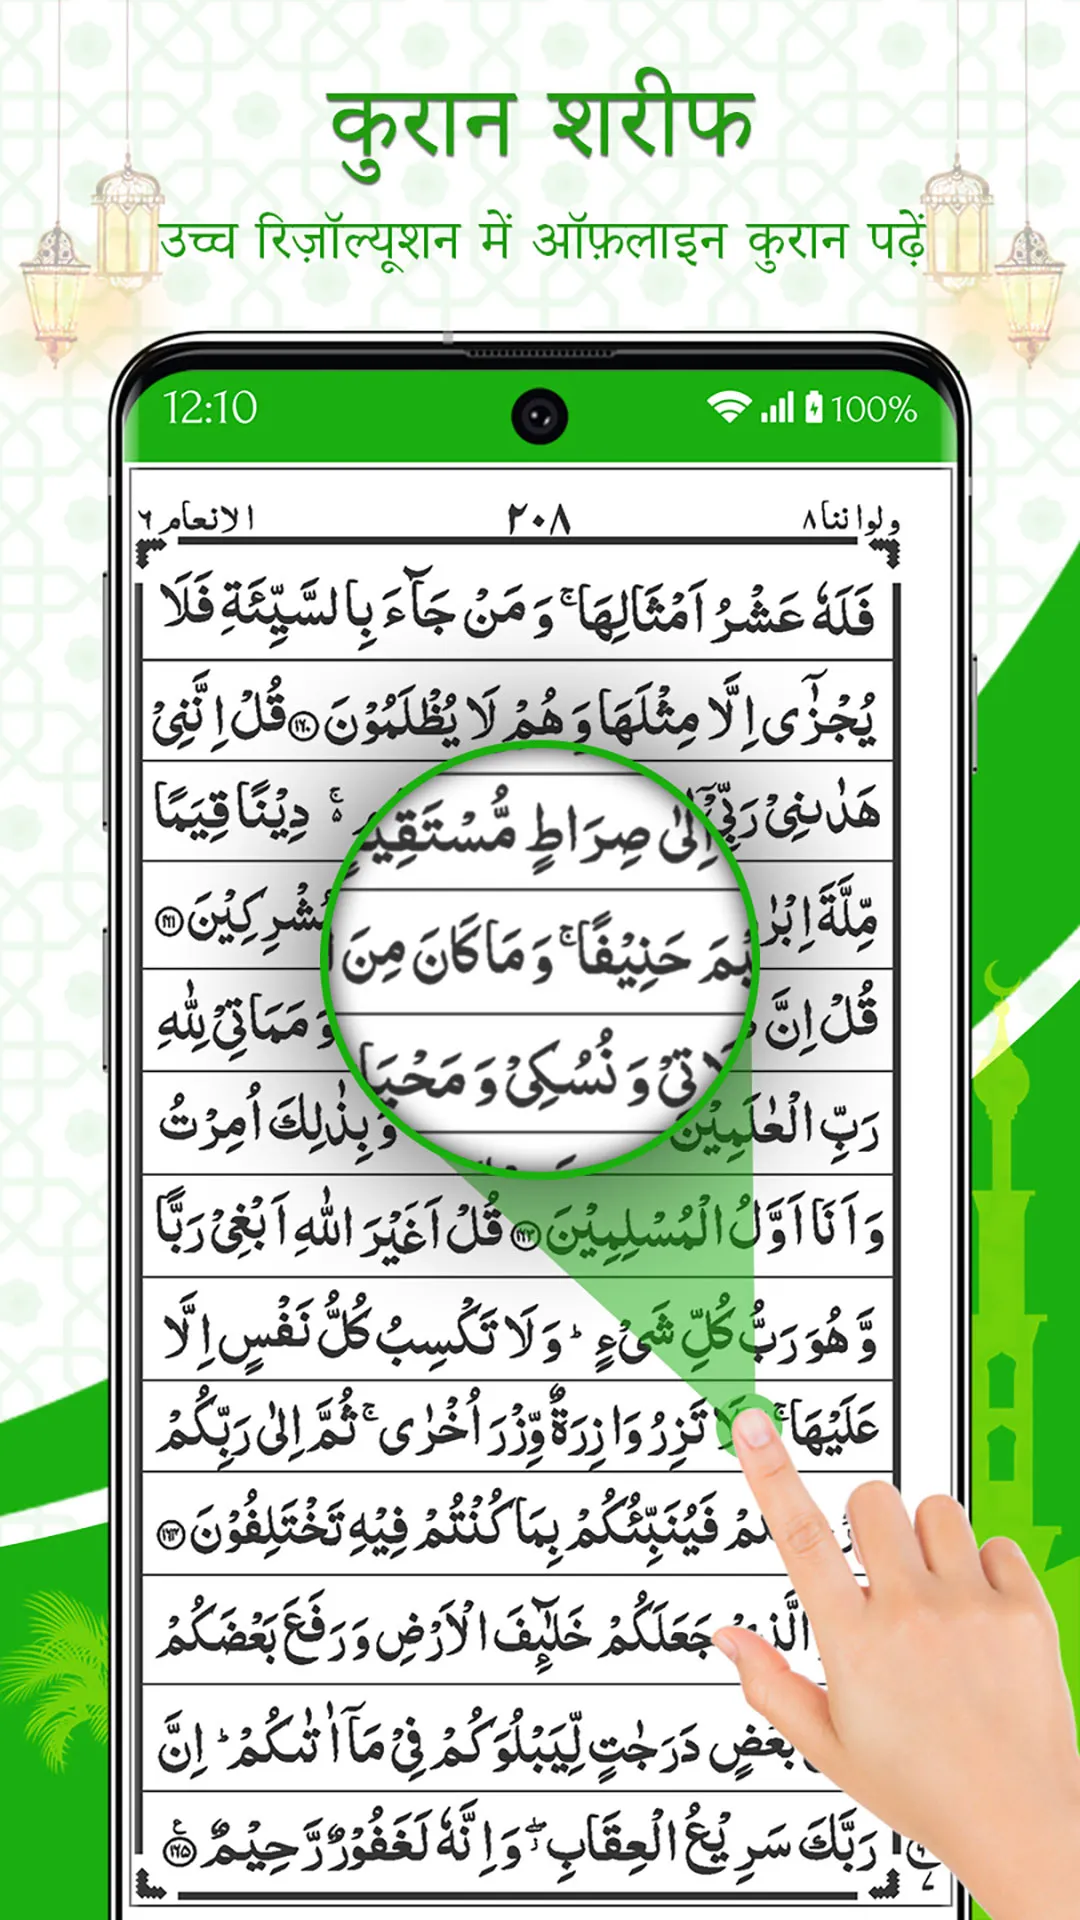 कुरान शरीफ
उच्च रिज़ॉल्यूशन में ऑफ़लाइन कुरान पढ़ें
12:10 100%
ولواننا ٨ ٢٠٨ الانعام ٦
فَلَهٗ عَشْرُ اَمْثَالِهَا ۚ وَ مَنْ جَآءَ بِالسَّيِّئَةِ فَلَا
يُجْزٰٓى اِلَّا مِثْلَهَا وَ هُمْ لَا يُظْلَمُوْنَ ﴿١٦٠﴾ قُلْ اِنَّنِيْ
هَدٰىنِيْ رَبِّيْٓ اِلٰى صِرَاطٍ مُّسْتَقِيْمٍ ۚ ٥ دِيْنًا قِيَمًا
مِّلَّةَ اِبْرٰهِيْمَ حَنِيْفًا ۚ وَ مَا كَانَ مِنَ الْمُشْرِكِيْنَ ﴿١٦١﴾
قُلْ اِنَّ صَلَاتِيْ وَ نُسُكِيْ وَ مَحْيَايَ وَ مَمَاتِيْ لِلّٰهِ
رَبِّ الْعٰلَمِيْنَ وَ بِذٰلِكَ اُمِرْتُ
وَ اَنَا اَوَّلُ الْمُسْلِمِيْنَ ﴿١٦٣﴾ قُلْ اَغَيْرَ اللّٰهِ اَبْغِيْ رَبًّا
وَّ هُوَ رَبُّ كُلِّ شَيْءٍ ؕ وَ لَا تَكْسِبُ كُلُّ نَفْسٍ اِلَّا
عَلَيْهَا ۚ لَا تَزِرُ وَازِرَةٌ وِّزْرَ اُخْرٰى ۚ ثُمَّ اِلٰى رَبِّكُمْ
فَيُنَبِّئُكُمْ بِمَا كُنْتُمْ فِيْهِ تَخْتَلِفُوْنَ ﴿١٦٤﴾
الَّذِيْ جَعَلَكُمْ خَلٰٓئِفَ الْاَرْضِ وَ رَفَعَ بَعْضَكُمْ
بَعْضٍ دَرَجٰتٍ لِّيَبْلُوَكُمْ فِيْ مَاۤ اٰتٰىكُمْ ؕ اِنَّ
رَبَّكَ سَرِيْعُ الْعِقَابِ ۖ وَ اِنَّهٗ لَغَفُوْرٌ رَّحِيْمٌ ﴿١٦٥﴾ ع
٧